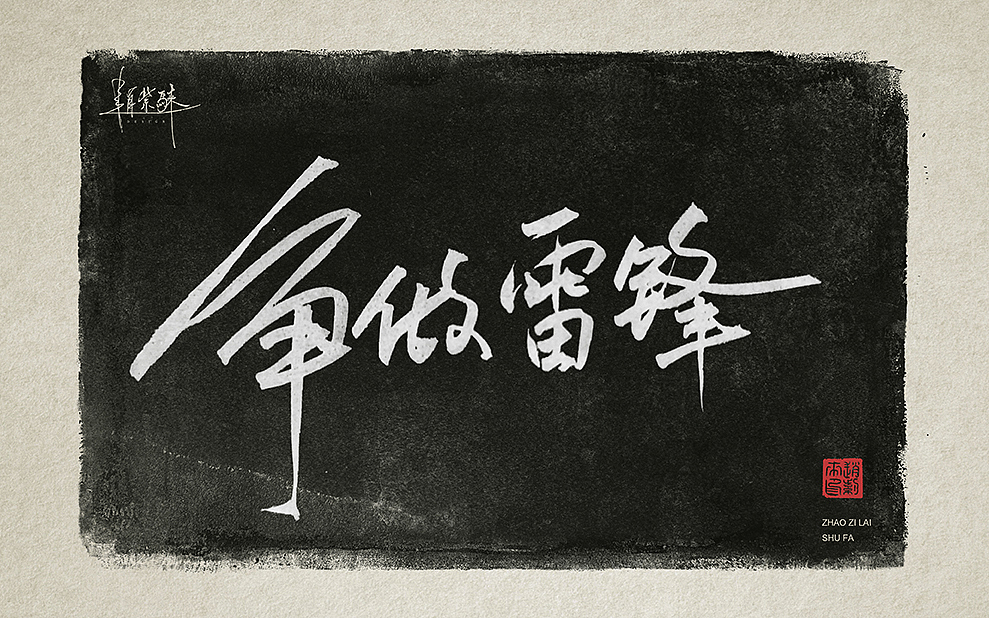 争做雷锋
ZHAO ZI LAI
SHU FA